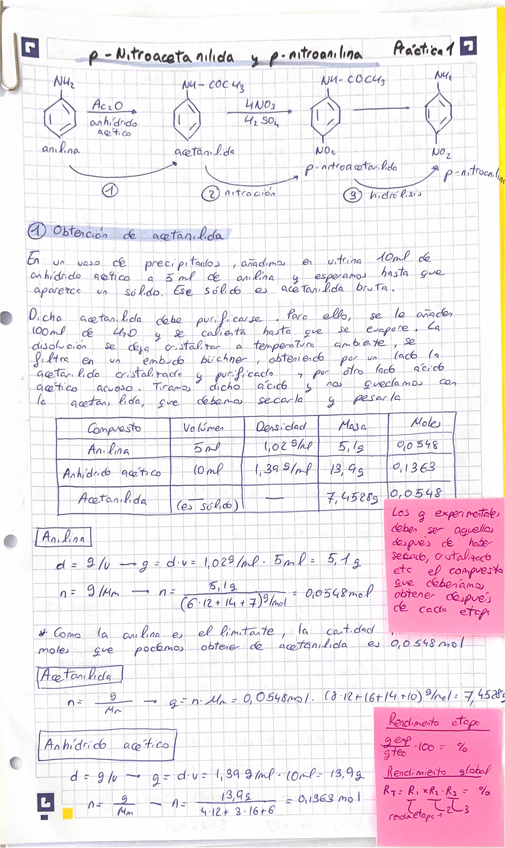 p-Nitroacetanilida y p-nitroanilina Práctica 1
NH₂ NH-COCH₃ NH-COCH₃ NH₂
Ac₂O HNO₃
anhídrido H₂SO₄
acético
NO₂ NO₂
anilina acetanilida p-nitroacetanilida p-nitroanilina
① ② nitración ③ hidrólisis
① Obtención de acetanilida
En un vaso de precipitados, añadimos en vitrina 10ml de
anhídrido acético a 5 ml de anilina y esperamos hasta que
aparezca un sólido. Ese sólido es acetanilida bruta.
Dicha acetanilida debe purificarse. Para ello, se le añaden
100ml de H₂O y se calienta hasta que se evapore. La
disolución se deja cristalizar a temperatura ambiente, se
filtra en un embudo büchner, obteniendo por un lado la
acetanilida cristalizada y purificada y por otro lado ácido
acético acuoso. Tiramos dicho ácido y nos quedamos con
la acetanilida, que debemos secarla y pesarla
Compuesto Volúmen Densidad Masa Moles
Anilina 5ml 1,02 g/ml 5,1g 0,0548
Anhídrido acético 10ml 1,39 g/ml 13,9g 0,1363
Acetanilida — (es sólido) — 7,4528g 0,0548
Los g experimentales
deben ser aquellos
después de haber
secado, cristalizado
etc el compuesto
que deberíamos
obtener después
de cada etapa
Anilina
d = g/v → g = d·v = 1,02g/ml · 5ml = 5,1g
n = g/Mm → n = 5,1g / (6·12+14+7) g/mol = 0,0548mol
* Como la anilina es el limitante, la cantidad
moles que podemos obtener de acetanilida es 0,0548mol
Acetanilida
n = g/Mm → g = n·Mm = 0,0548mol · (8·12+16+14+10) g/mol = 7,4528g
Anhídrido acético
d = g/v → g = d·v = 1,39 g/ml · 10ml = 13,9g
n = g/Mm → n = 13,9g / 4·12+3·16+6 = 0,1363 mol
Rendimiento etapa
g exp / g teo · 100 = %
Rendimiento global
R_T = R₁ × R₂ · R₃ = %